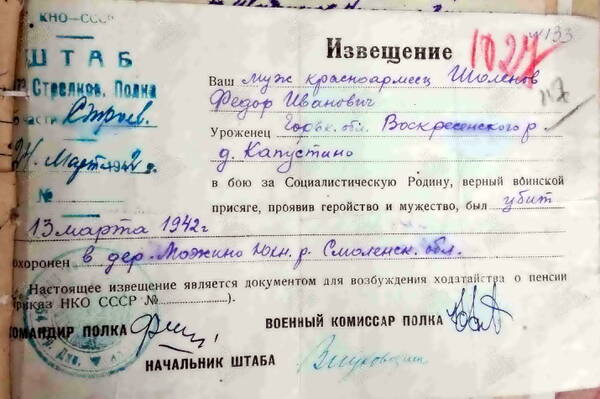 НКО-СССР
ШТАБ
Стрелков. Полка
части Строев.
24 Март 1942 г.
№
Извещение
1027
№133
Ваш муж красноармеец Шоленов
Федор Иванович
Уроженец Горьк. обл. Воскресенского р
д. Капустино
в бою за Социалистическую Родину, верный воинской
присяге, проявив геройство и мужество, был убит
13 марта 1942 г
охоронен в дер. Можино Юхн. р. Смоленск. обл.
Настоящее извещение является документом для возбуждения ходатайства о пенсии
риказ НКО СССР №).
ОМАНДИР ПОЛКА
ВОЕННЫЙ КОМИССАР ПОЛКА
НАЧАЛЬНИК ШТАБА